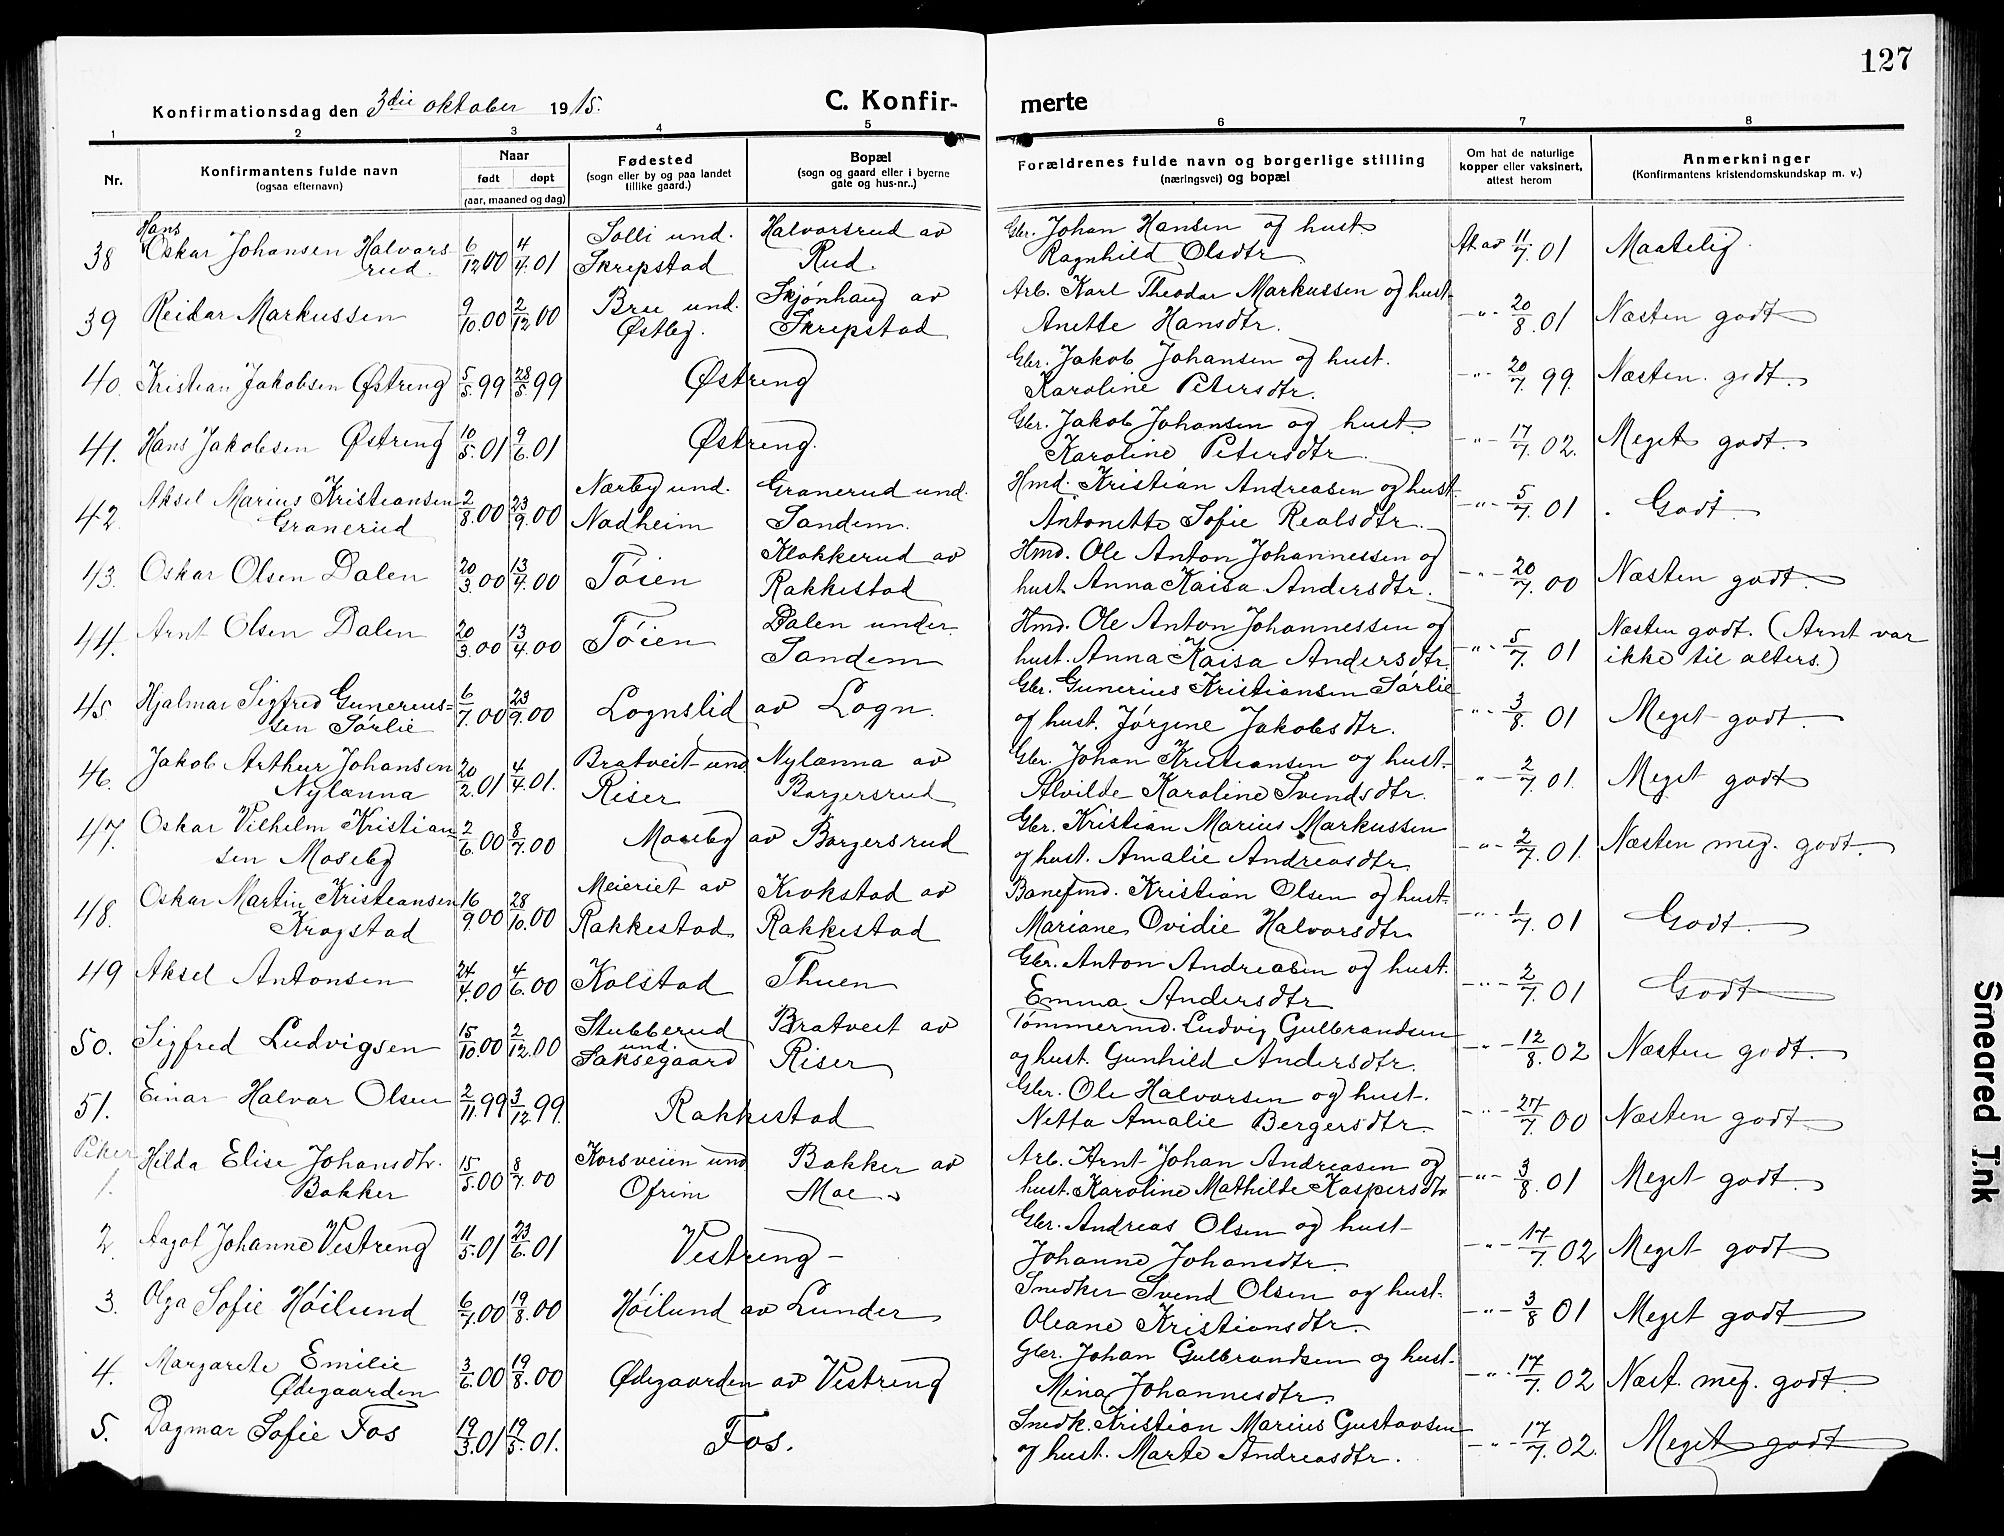 127
Konfirmationsdag den 3die oktober 1915.
C. Konfir- merte
1 2 3 4 5 6 7 8
Nr.
Konfirmantens fulde navn
(ogsaa efternavn)
Naar
født døpt
(aar, maaned og dag)
Fødested
(sogn eller by og paa landet
tillike gaard.)
Bopæl
(sogn og gaard eller i byerne
gate og hus-nr..)
Forældrenes fulde navn og borgerlige stilling
(næringsvei) og bopæl
Om hat de naturlige
kopper eller vaksinert,
attest herom
Anmerkninger
(Konfirmantens kristendomskundskap m. v.)
Hans
38 Oskar Johansen Halvors- 6/12 00 4/4 01 Solli und. Halvorsrud av Gbr. Johan Hansen og hust. At av 11/7 01 Maatelig.
rud. Skrepstad Rud. Ragnhild Olsdtr
39 Reidar Markussen 9/10 00 2/12 00 Bree und. Skjønhaug av Arb. Karl Theodor Markussen og hust. -"- 20/8 01 Næsten godt
Østby. Skrepstad Anette Hansdtr.
40. Kristian Jakobsen Østreng 5/5 99 28/5 99 Østreng Gbr. Jakob Johansen og hust. -"- 20/7 99. Næsten godt.
Karoline Petersdtr.
41. Hans Jakobsen Østreng 10/5 01 9/6 01 Østreng. Gbr. Jakob Johansen og hust. -"- 17/7 02. Meget godt.
Karoline Petersdtr.
42. Aksel Marius Kristiansen 2/8 00 23/9 00 Nærby und. Granerud und. Hmd. Kristian Andreasen og hust. -"- 5/7 01 Godt.
Granerud Nadheim Sandem. Antonette Sofie Realsdtr.
43. Oskar Olsen Dalen 20/3 00 13/4 00 Tøien Klokkerud av Hmd. Ole Anton Johannessen og -"- 20/7 00 Næsten godt.
Rakkestad hust. Anna Kaisa Andersdtr.
44. Arnt Olsen Dalen 20/3 00 13/4 00 Tøien Dalen under Hmd. Ole Anton Johannessen og -"- 5/7 01 Næsten godt. (Arnt var
Sandem hust. Anna Kaisa Andersdtr. ikke til alters.)
45 Hjalmar Sigfred Gunerius- 6/7 00 23/9 00 Lognslid av Logn. Gbr. Gunerius Kristiansen Sørlie -"- 3/8 01 Meget godt.
sen Sørlie og hust. Jørgine Jakobsdtr.
46. Jakob Arthur Johansen 20/2 01 4/4 01. Bratveit und Nylænna av Gbr. Johan Kristiansen og hust. -"- 2/7 01. Meget godt
Nylænna Riser Borgersrud Alvilde Karoline Svendsdtr.
47. Oskar Vilhelm Kristian- 2/6 00 8/7 00 Moseby av Borgersrud Gbr. Kristian Marius Markussen -"- 2/7 01. Næsten meg. godt.
sen Moseby og hust. Amalie Andreasdtr.
48. Oskar Martin Kristiansen 16/9 00 28/10 00 Meieriet av Krokstad av Banefmd. Kristian Olsen og hust. -"- 1/7 01 Godt.
Krogstad Rakkestad Rakkestad Mariane Ovidie Halvorsdtr
49 Aksel Antonsen 24/4 00 4/6 00 Kolstad Thuen Gbr. Anton Andreasen og hust. -"- 2/7 01 Godt
Emma Andersdtr
50. Sigfred Ludvigsen 15/10 00 2/12 00 Stubberud Bratveit av Tømmermd. Ludvig Gulbrandsen -"- 12/8 02 Næsten godt.
und. Saksegaard Riser og hust. Gunhild Andersdtr.
51. Einar Halvor Olsen 2/11 99 3/12 99. Rakkestad Gbr. Ole Halvorsen og hust. -"- 27/7 00 Næsten godt
Netta Amalie Bergersdtr.
Piker
1. Hilda Elise Johansdtr. 15/5 00 8/7 00 Korsveien und Bakker av Arb. Arnt Johan Andreasen og -"- 3/8 01 Meget godt.
Bakker Ofrim Moe hust. Karoline Mathilde Kaspersdtr
2. Aagot Johanne Vestreng 11/5 01 23/6 01 Vestreng Gbr. Andreas Olsen og hust. -"- 17/7 02 Meget godt
Johanne Johansdtr.
3. Olga Sofie Høilund 6/7 00 19/8 00 Høilund av Lunder Snedker Svend Olsen og hust. -"- 3/8 01 Meget godt
Oleane Kristiansdtr.
4. Margarete Emilie 3/6 00 19/8 00 Ødegaarden av Vestreng Gbr. Johan Gulbrandsen og hust. -"- 17/7 02 Næst. meg. godt.
Ødegaarden Mina Johannesdtr.
5. Dagmar Sofie Fos 19/3 01 19/5 01. Fos. Snedk. Kristian Marius Gustavsen -"- 17/7 02. Meget godt
og hust. Marte Andreasdtr.
Smeared Ink